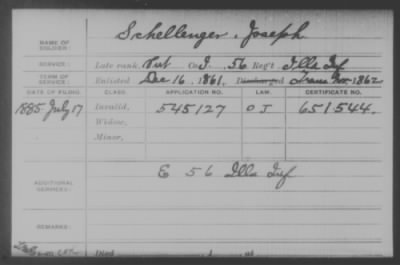 NAME OF SOLDIER: Schellenger, Joseph
SERVICE: Late rank, Pvt Co. I, 56 Reg't Ills Inf
TERM OF SERVICE: Enlisted Dec 16, 1861, Discharged Trans Nov. 1862
DATE OF FILING. CLASS. APPLICATION NO. LAW. CERTIFICATE NO.
1885 July 17 Invalid, 545127 O J. 651544.
Widow,
Minor,
ADDITIONAL SERVICES: E 56 Ills Inf
REMARKS:
Died , 1 , at